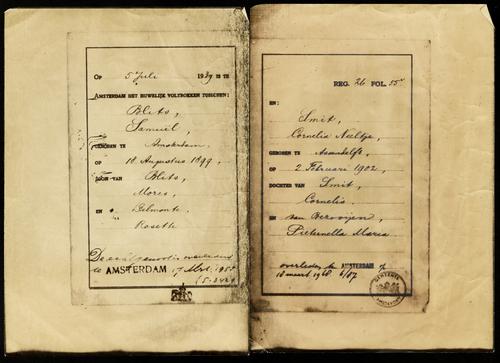 OP 5 Juli 1939 IS TE
AMSTERDAM HET HUWELIJK VOLTROKKEN TUSSCHEN:
Blits,
Samuel,
GEBOREN TE Amsterdam,
OP 18 Augustus 1899,
ZOON VAN Blits,
Mores,
EN Belmonte,
Rosette
De eerstgenoemde overleden
te AMSTERDAM 17 Mrt. 1958
REG. 26 FOL. 55
EN:
Smit,
Cornelia Neeltje,
GEBOREN TE Assendelft,
OP 2 Februari 1902,
DOCHTER VAN Smit,
Cornelis
EN van Roooijen,
Pieternella Maria
overleden te AMSTERDAM op
18 maart 1968 6/87
GEMEENTE
AMSTERDAM